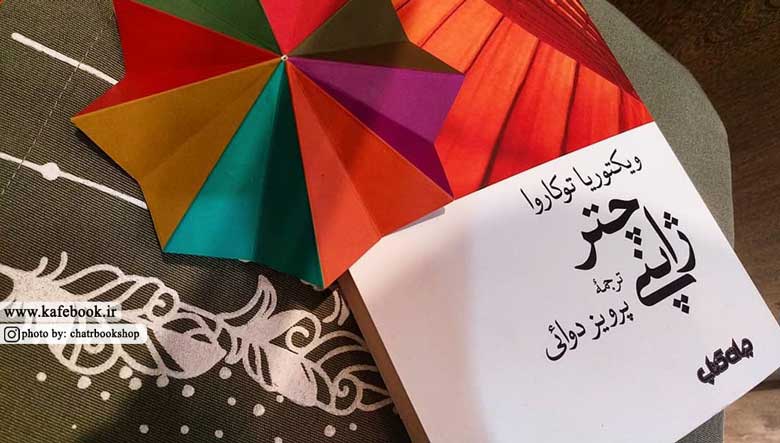 ویکتوریا توکاروا
چتر
ژاپنی
ترجمهٔ
پرویز دوائی
جهان کتاب
www.kafebook.ir
photo by: chatrbookshop